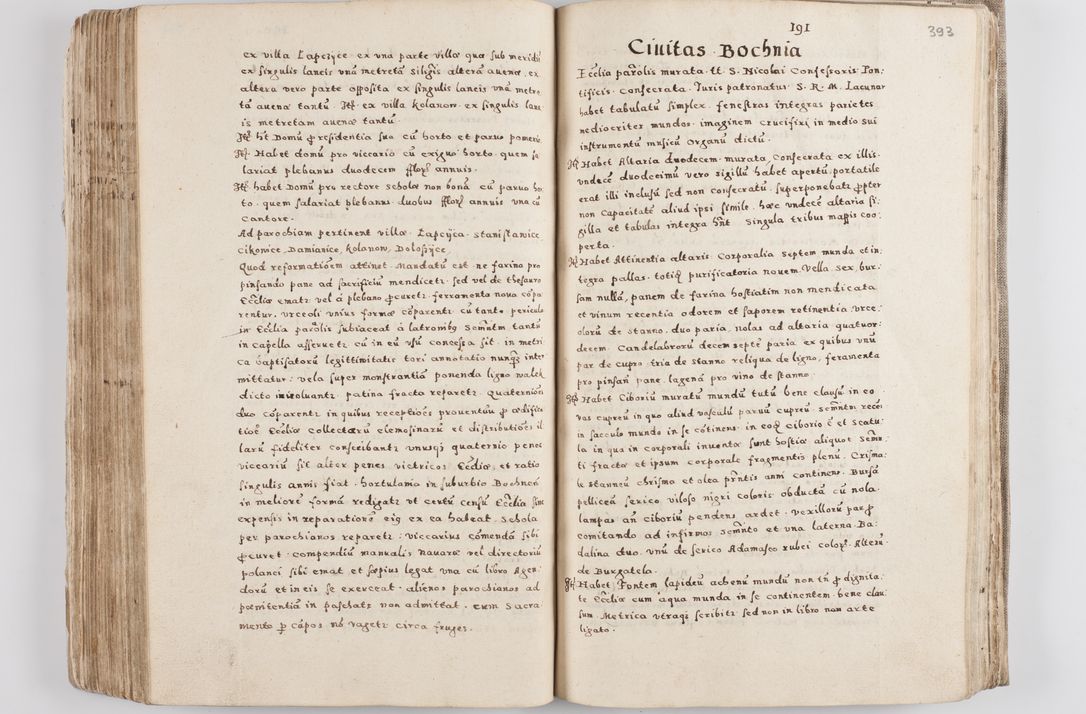 ex villa Lapczÿce ex una parte villæ quæ sub meridiẽ
ex singulis laneis unã metretã siligīs alterã auenæ, ex
altera vero parte opposita ex singulis laneis unã metre
tã auenæ tantũ. Itẽ ex villa Kolanow ex singulis lane
is metretam auenæ tantũ.
Itẽ ht Domũ p residentia sua cũ horto et paruo pomerio
Itẽ Habet domũ pro viccario cũ exiguo horto quem sa
lariat plebanus duodecem fflor annuis.
Itẽ habet Domũ pro rectore scholæ non bonã cũ paruo hor
to quem salariat plebanus duobus fflor annuis una cũ
Cantore.
Ad parochiam pertinent villæ Lapcÿca Stanislawice
Cikowice, Damianice, Kolanow, Dolosÿce,
Quod reformatiõem attinet Mandatũ est ne farina pro
pinsando pane ad sacrificiũ mendicetr sed vel de thesauro
Ecclïæ ematr vel á plebano pcuretr. ferramenta noua cõpa
rentur. vrceoli vnius formæ cõparentr cũ tanto periculo
in Ecclia parõlis subiaceat á latronibg Semñtm tantũ
in capella asseruetr cũ in eũ vsũ concessa sit in metri
ca baptisatorũ legittimitatis tori annotatio nunqg inter
mittatur: vela super monstrantiã ponenda ligno walek
dicto inuoluantr patina fracta reparetr Quaternióes
duo cõparentr in quibus receptioẽs prouentuũ p ædifica
tioẽ Ecclïæ collectarũ elemosinarũ et distributiões il
larũ fideliter conscribantr vnusqg quaternio penes
viccariũ sit alter penes victricos Ecclïæ, et ratio
singulis annis fiat hortulania in suburbio Bochnen
in meliorẽ formã redigatr vt certũ censũ Ecclïa sine
expensis in reparationẽ eig ex ea habeat schola
per parochianos reparetr viccarius cõmendã sibi
pcuret compendiũ manualis nauaræ vel directoriũ
polanci sibi emat et sæpius legat una cũ libro Agen
dorũ et in eis se exerceat alienos parochianos ad
pœnitentiã in paschate non admittat cum Sacra
mento p cãpos nõ vagetr circa fruges.
191
393
Ciuitas Bochnia
Ecclia parõlis murata tt S. Nicolai Confessoris Pon
tificis consecrata Iuris patronatus S. R. M. Lacunar
habet tabulatũ simplex fenestras integras parietes
mediocrites mundos imaginem crucifixi in medio sui
instrumentũ musicũ organũ dictũ.
Itẽ Habet Altaria duodecem murata, consecrata ex illis
undecẽ duodecimũ vero sigillũ habet apertũ portatile
erat illi inclusũ sed non consecratũ superponebatr ppter
non capacitatẽ aliud ipsi simile hæc undecẽ altaria si
gilla et tabulas integra hñt Singula tribus mappis coo
perta.
Itẽ Habet Attinentia altaris Corporalia septem munda et in
tegra pallas totiẽ purificatoria nouem. Vella sex, bur
sam nullã, panem de farina hostiatim non mendicata
et vinum recentia odorem et saporem retinentia vrce
olorũ de stanno duo paria, nolas ad altaria quatuor
decem Candelabrorũ decem septẽ paria ex quibus unũ
par de cupro tria de stanno reliqua de ligno, feramenta
pro pinsañ pane lagenã pro vino de stanno.
Itẽ Habet Ciboriũ muratũ mundũ tutũ bene clausũ in eo
vas cupreũ in quo aliud vasculũ paruũ cupreũ semñtm recẽs
in sacculo mundo in se cõtinens in eoqg ciborio ẽ et scatu
la in qua in corporali inuentæ sunt hostiæ aliquot Semñ
ti fractæ et ipsum corporale fragmentis plenũ. Crisma
le stanneũ chrisma et olea pñtis anni continens Bursã
pelliceã serico viloso nigri coloris obductã cũ nola
lampas añ ciboriũ pendens ardet vexillorũ par p
comitando ad infirmos Semñto et una laterna Ba
dalina duo vnũ de serico Adamasco rubei color. Alterũ
de Burgatela.
Itẽ Habet Fontem lapideũ achenũ mundũ non tñ p dignita
te Ecclïæ cum aqua munda in se continentem bene clau
sum Metrica vtraqg scribitr sed non in libro non arte
ligato.